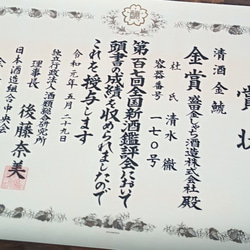 賞状
清酒 金鯱
金賞 盛田金しゃち酒造株式会社殿
杜氏 清水 徹
容器番号 一七〇号
第百七回全国新酒鑑評会において
頭書の成績を収められましたので
これを授与します
令和元年五月二十九日
独立行政法人酒類総合研究所
理事長 後藤奈美
日本酒造組合中央会